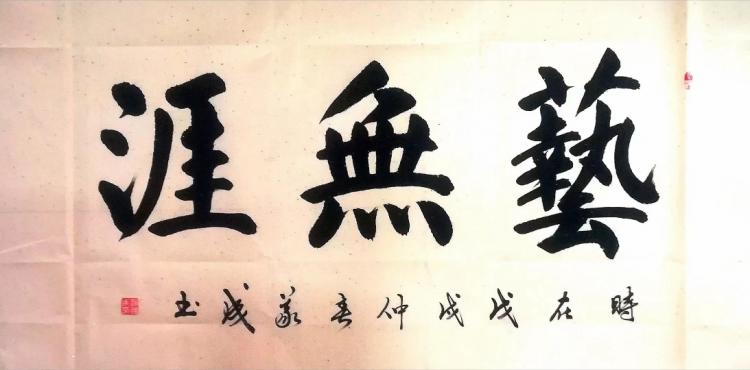 藝無涯
時在戊戌仲春義成书